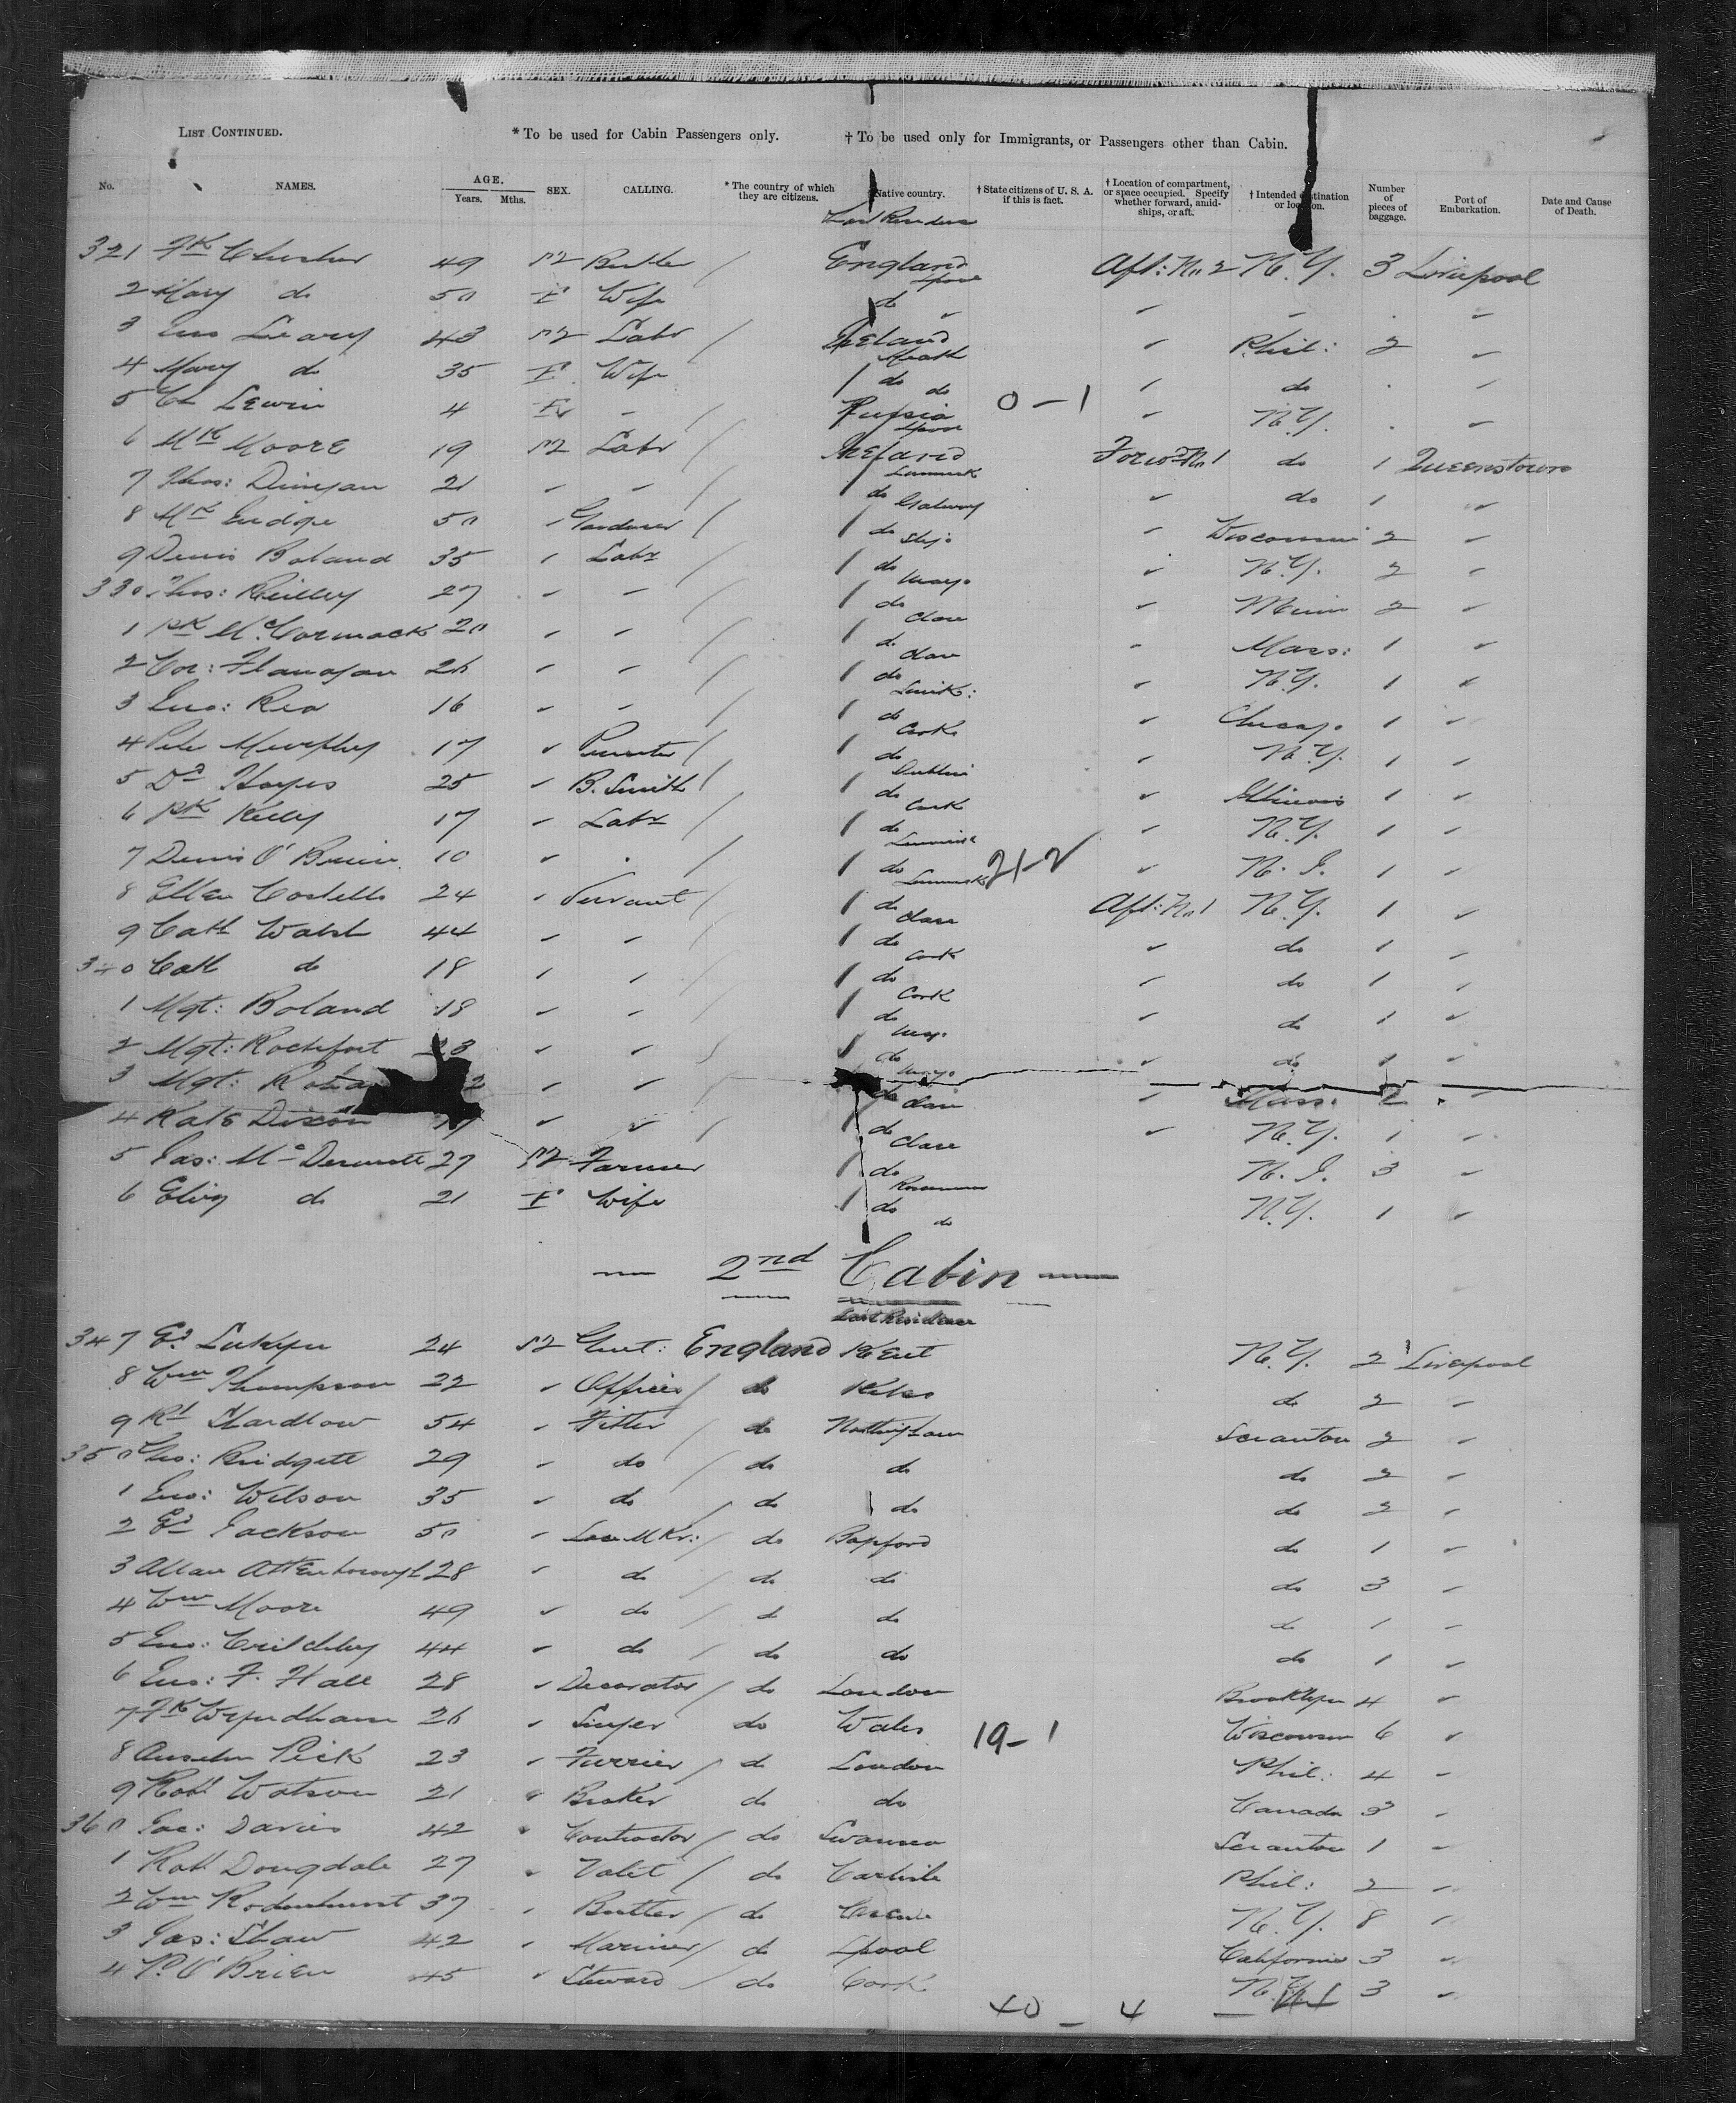 LIST CONTINUED. * To be used for Cabin Passengers only. † To be used only for Immigrants, or Passengers other than Cabin.
No. NAMES. AGE. Years. Mths. SEX. CALLING. * The country of which they are citizens. † Native country. † State citizens of U. S. A. if this is fact. † Location of compartment, or space occupied. Specify whether forward, amidships, or aft. † Intended destination or location. Number of pieces of baggage. Port of Embarkation. Date and Cause of Death.
Last Residence
321 Fk 49 M Butler / England Lpool Aft: No 2 N.Y. 3 Liverpool
2 Mary do 50 F Wife do
3 Jno Leary 43 M Labr / Ireland Meath Phil: 2
4 Mary do 35 F Wife do do do
5 Lewin 4 F - / Russia Lpool 0-1 N.Y.
6 Mk Moore 19 M Labr / Ireland Limerick Forwd No 1 do 1 Queenstown
7 Thos: 21 - / do Galway do 1
8 50 Gardener / do Sligo Wisconsin 2
9 Denis Boland 35 Labr / do Mayo N.Y. 2
330 Thos: Reilley 27 - / do Clare Minn 2
1 Pk McCormack 20 / do Clare Mass: 1
2 Cor: Flanagan 26 / do Limk: N.Y. 1
3 Jno: Rea 16 / do Cork Chicago 1
4 Pete Murphy 17 / do Dublin N.Y. 1
5 Dd Hayes 25 B. Smith / do Cork Illinois 1
6 Pk Kelly 17 Labr / do Limerick N.Y. 1
7 Denis O'Brien 10 . / do Limerick 21-2 N.J. 1
8 Ellen Costello 24 Servant / do Clare Aft: No 1 N.Y. 1
9 Cath Walsh 44 / do Cork do 1
340 Cath do 18 / do Cork do 1
1 Mgt: Boland 18 / do Mayo do 1
2 Mgt: Rochfort 23 / do Mayo do 1
3 Mgt: 2 / do Clare Mass: 2
4 Kate Dixon 19 / do Clare N.Y. 1
5 Jas: McDermott 27 M Farmer do Roscommon N.J. 3
6 Eliz do 21 F Wife do do N.Y. 1
— 2nd Cabin —
Last Residence
347 Ed Lukyn 24 M Gent: England Kent N.Y. 2 Liverpool
8 Wm Thompson 22 Officer / do Kelso do 2
9 Rt Shardlow 54 Fitter / do Nottingham Scranton 2
350 Bridgett 29 do / do do do 2
1 Jno: Wilson 35 do / do do do 2
2 Ed Jackson 50 Lace Mkr: / do Basford do 1
3 Allan Attenborough 28 do / do do do 3
4 Wm Moore 49 do / do do do 1
5 Jno: Critchley 44 do / do do do 1
6 Jno: F. Hall 28 Decorator / do London Brooklyn 4
7 Fk Wyndham 26 Singer do Wales 19-1 Wisconsin 6
8 Anselm Pick 23 Furrier / do London Phil: 4
9 Robt Watson 21 Broker do do Canada 3
360 Davies 42 Contractor / do Swansea Scranton 1
1 Robt Dougdale 27 Valet / do Carlisle Phil: 2
2 Wm Rodenhurst 37 Butler / do N.Y. 8
3 Jas: Shaw 42 Mariner / do Lpool California 3
4 P. O'Brien 45 Steward / do Cork N.Y. 3
40-4